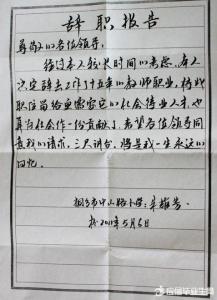 辞职报告
尊敬的各位领导:
经过本人较长时间的考虑,本人
决定辞去工作了十五年的教师职业,将此
职位留给更需要它的社会待业人才,也
算为社会作一份贡献了,希望各位领导同
意我的请求,三尺讲台,将是我一生永远的
回忆。
桐乡市中山路小学:
2011年5月6日
应届毕业生网